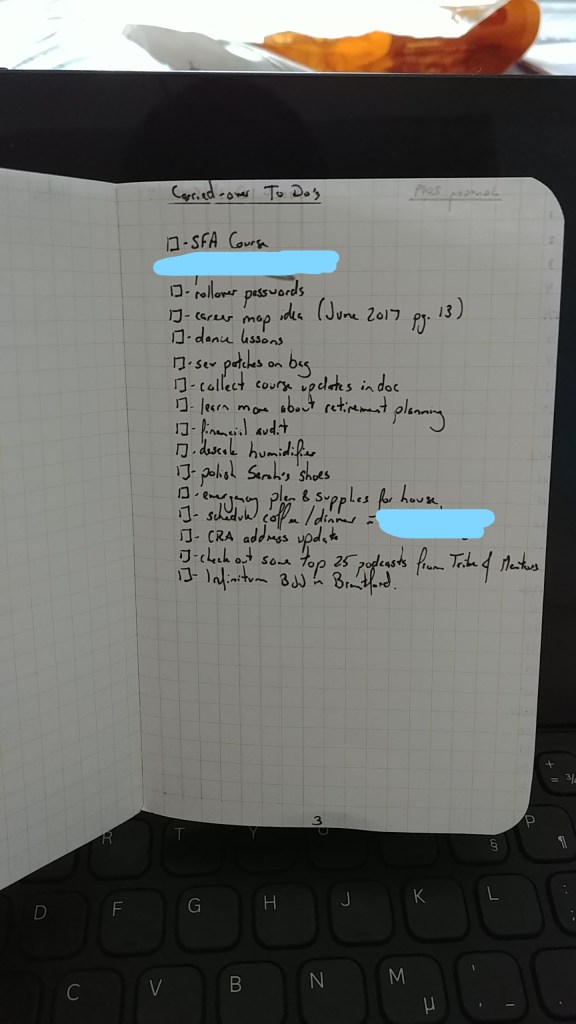 Carried-over To Do's
□ - SFA Course
□ - rollover passwords
□ - career map idea (June 2017 pg. 13)
□ - dance lessons
□ - sew patches on bag
□ - collect course updates in doc
□ - learn more about retirement planning
□ - financial audit
□ - descale humidifier
□ - polish Sarah's shoes
□ - emergency plan & supplies for house
□ - schedule coffee/dinner =
□ - CRA address update
□ - check out some top 25 podcasts from Tribe of Mentors
□ - Infinitum in Brantford.
3
R T Y U P
§ ¶
+
= 3/4
D F G H J K L ; :
C V B N M ' , -
µ